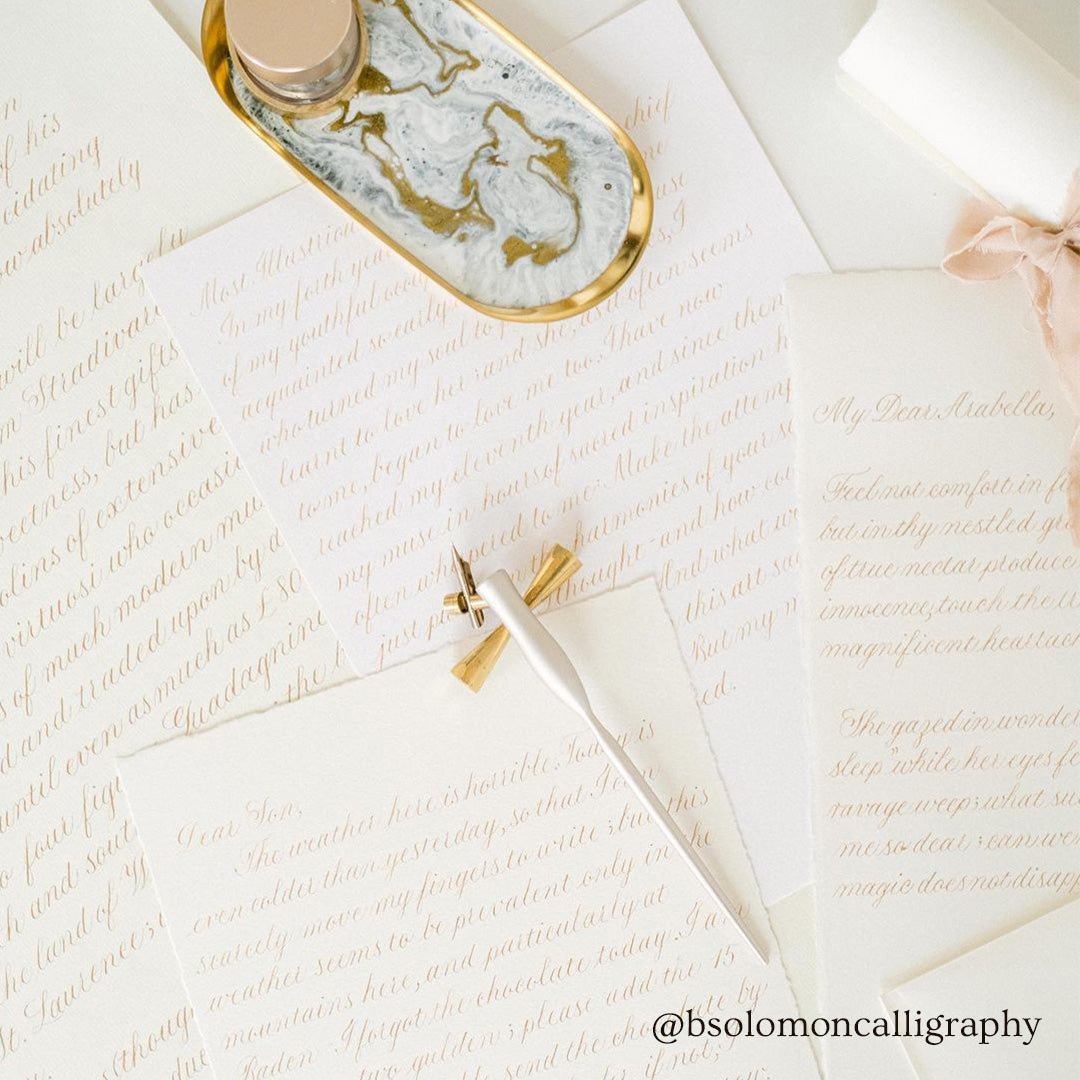 n
of his
cidating
ow absolutely
will be largely
m Stradivari
his finest gifts
eetness, but has
olins of extensive
virtuosi who occasio
s of much modern mu
d and traded upon by d
until even as much as £80
o four figu Guadagnine
ch and sout the
he land of W
t. Laurence;
(though
chief
Most Illustriou
In my forth yea use
of my youthful occ s, I
acquainted so early as I often seems
who turned my soul to
learnt to love her; and she,
to me, began to love me too. I have now
reached my eleventh year, and since then
my muse in hours of sacred inspiration h
often whispered to me: Make the attemp
just harmonies of your s
thought - and how co
And what wo
this art sa
But my m
ed.
My Dear Arabella,
Feel not comfort in fe
but in thy nestled gra
of true nectar produce
innocence, touch the
magnificent heart ach
She gazed in wonder
sleep" while her eyes fe
ravage weep; what su
me so dear; can we
magic does not disapp
Dear Son,
The weather here is horrible. Today is
even colder than yesterday, so that I can
scarcely move my fingers to write; but this
weather seems to be prevalent only in the
mountains here, and particularly at
Baden I forgot the chocolate today. I am
two gulden; please add the 15
send the chocolate by
if not;
@bsolomoncalligraphy